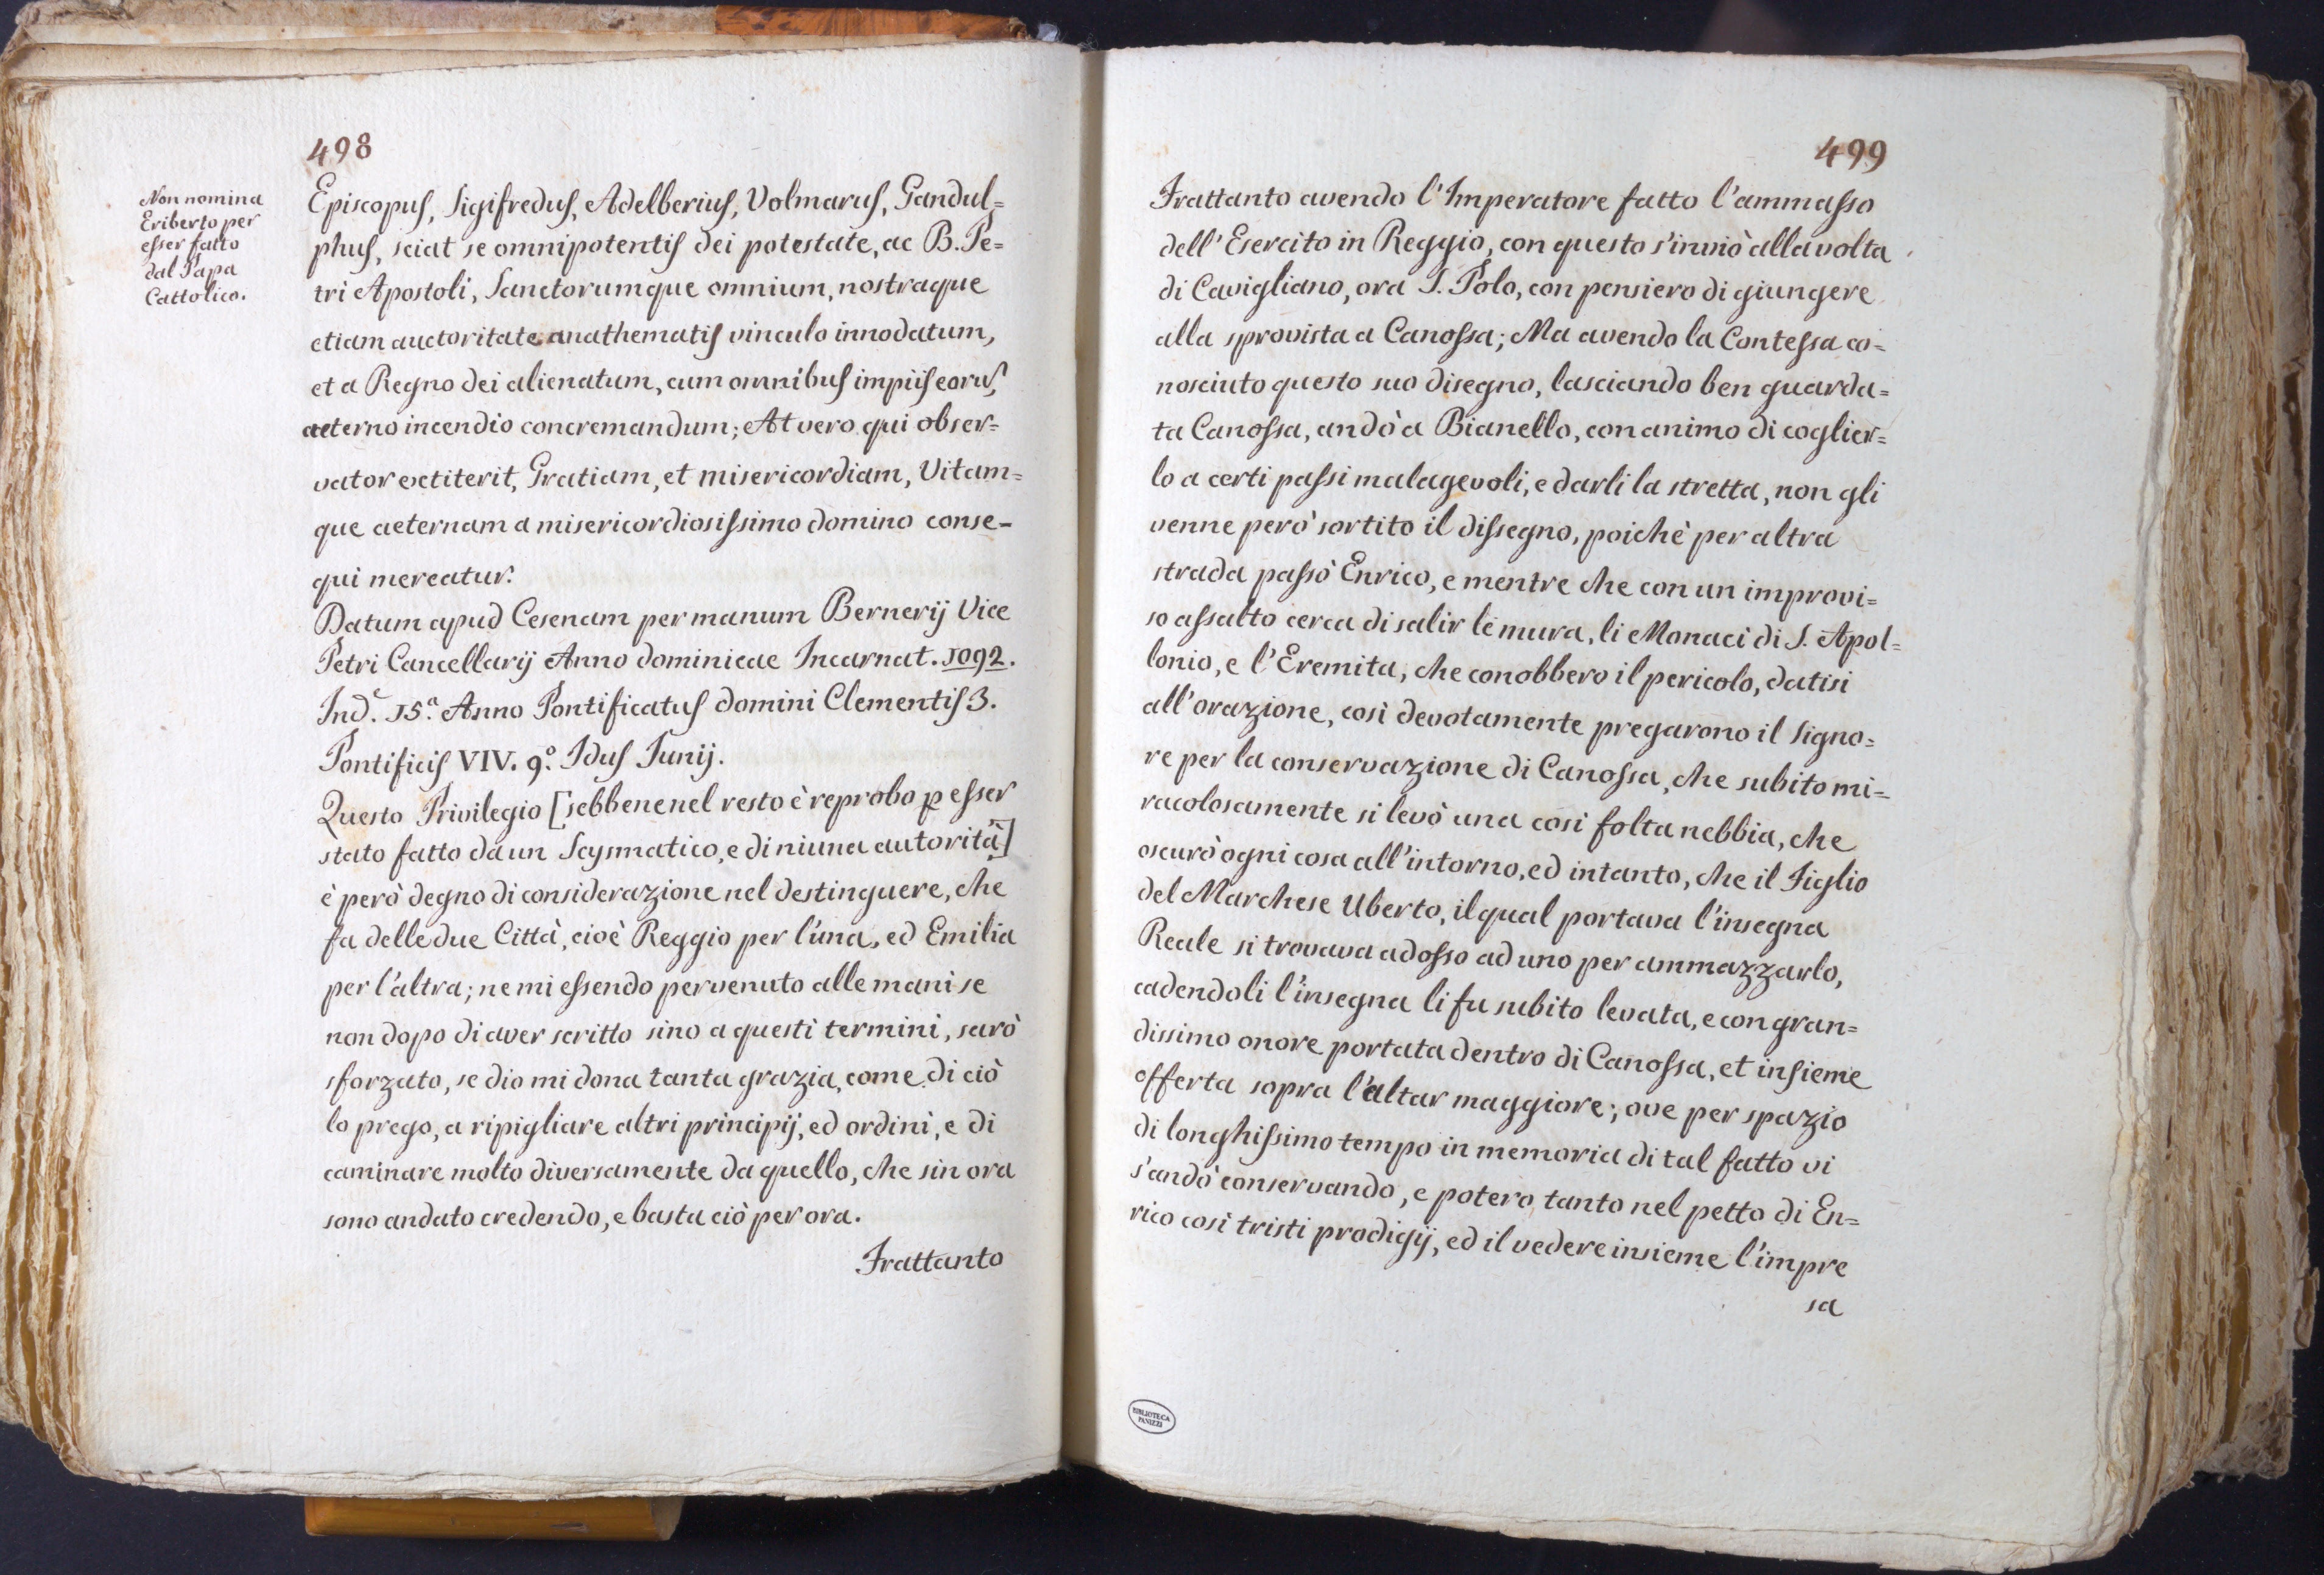 498
Non nomina
Eriberto per
esser fatto
dal Papa
Cattolico.
Episcopus, Sigifredus, Adelberius, Volmarus, Gandul=
phus, sciat se omnipotentis dei potestate, ac B. Pe=
tri Apostoli, Sanctorumque omnium, nostraque
etiam auctoritate anathematis vinculo innodatum,
et a Regno dei alienatum, cum omnibus impiis eorus,
aeterno incendio concremandum; At vero qui obser=
vator extiterit, Gratiam, et misericordiam, Vitam=
que aeternam a misericordiosissimo domino conse=
qui mereatur.
Datum apud Cesenam per manum Bernerij Vice
Petri Cancellarij Anno dominicae Incarnat. 1092.
Ind. 15.a Anno Pontificatus domini Clementis 3.
Pontificis VIV. 9.o Idus Junij.
Questo Privilegio [sebbene nel resto è reprobo p esser
stato fatto da un Scysmatico, e di niuna autorità]
è però degno di considerazione nel destinguere, che
fa delle due Città, cioè Reggio per l'una, ed Emilia
per l'altra; ne mi essendo pervenuto alle mani se
non dopo di aver scritto sino a questi termini, sarò
sforzato, se dio mi dona tanta grazia, come di ciò
lo prego, a ripigliare altri principij, ed ordini, e di
caminare molto diversamente da quello, che sin ora
sono andato credendo, e basta ciò per ora.
Frattanto
499
Frattanto avendo l'Imperatore fatto l'ammasso
dell'Esercito in Reggio, con questo s'inviò alla volta
di Cavigliano, ora S. Polo, con pensiero di giungere
alla sprovista a Canossa; Ma avendo la Contessa co=
nosciuto questo suo disegno, lasciando ben guarda=
ta Canossa, andò a Bianello, con animo di coglier=
lo a certi passi malagevoli, e darli la stretta, non gli
venne però sortito il dissegno, poichè per altra
strada passò Enrico, e mentre che con un improvi=
so assalto cerca di salir le mura, li Monaci di S. Apol=
lonio, e l'Eremita, che conobbero il pericolo, datisi
all'orazione, così devotamente pregarono il Signo=
re per la conservazione di Canossa, che subito mi=
racolosamente si levò una così folta nebbia, che
oscurò ogni cosa all'intorno, ed intanto, che il Figlio
del Marchese Uberto, il qual portava l'insegna
Reale si trovava adosso ad uno per ammazzarlo,
cadendoli l'insegna li fu subito levata, e con gran=
dissimo onore portata dentro di Canossa, et insieme
offerta sopra l'altar maggiore; ove per spazio
di longhissimo tempo in memoria di tal fatto vi
s'andò conservando, e potero tanto nel petto di En=
rico così tristi prodigij, ed il vedere insieme l'impre
sa
BIBLIOTECA
PANIZZI